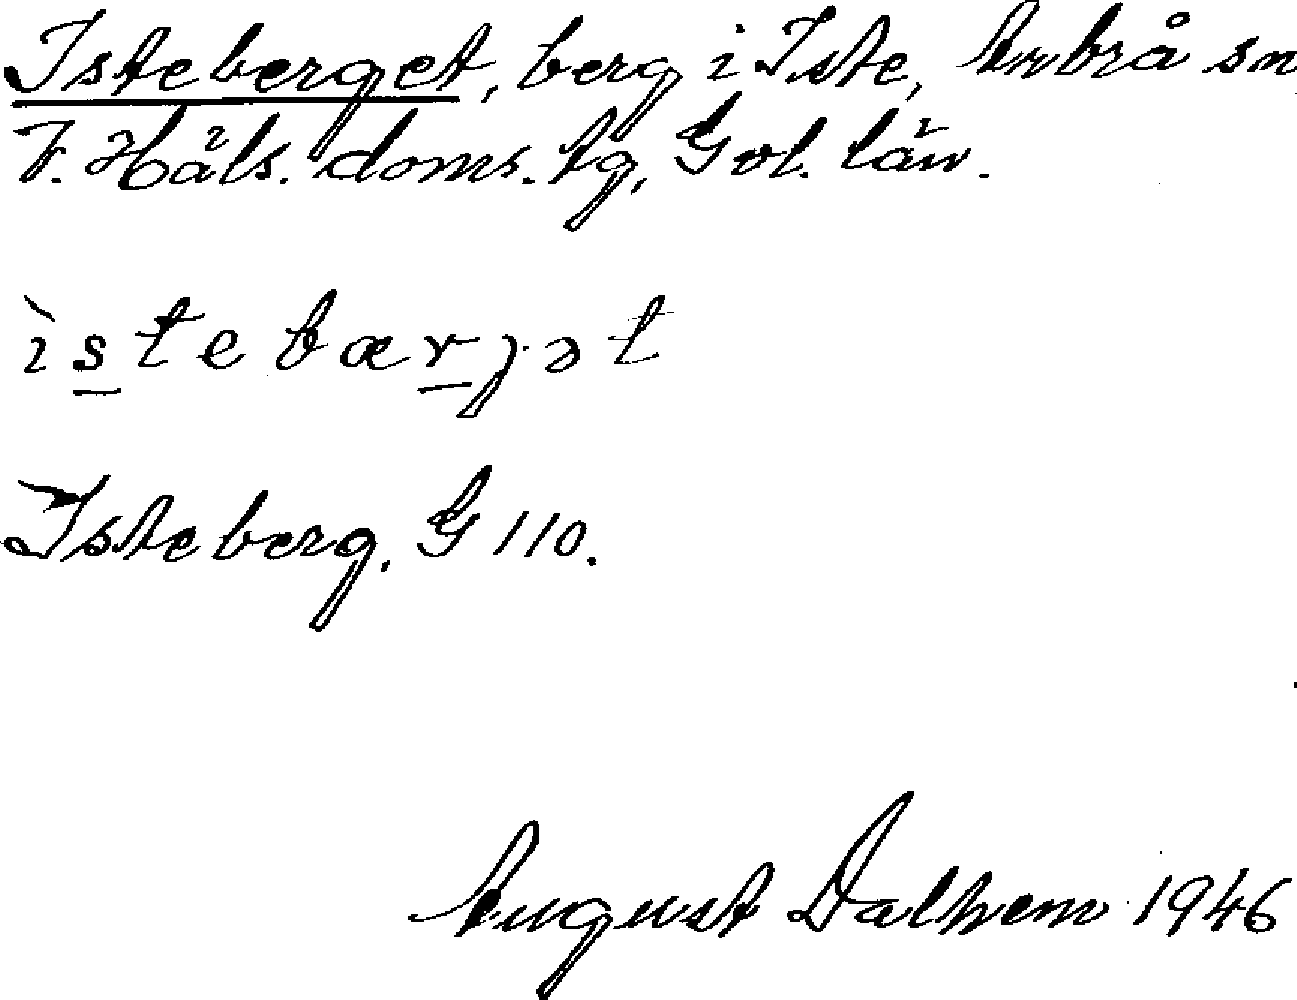 Isteberget, berg i Iste, Arbrå sn
V. Häls. doms. tg, Gvl. län.
ìstebærjət
Isteberg. G 110.
August Dalhem 1946